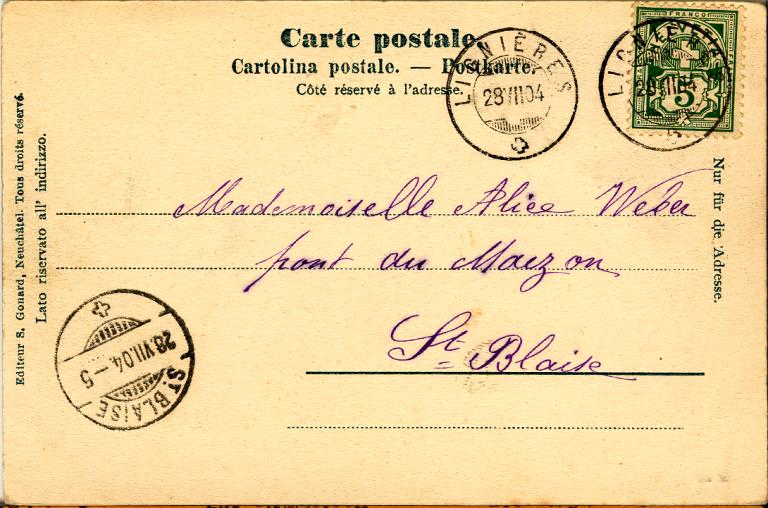 Carte postale.
Cartolina postale. — Postkarte.
Côté réservé à l'adresse.
LIGNIÈRES
28 VII 04
LIGNIÈRES
28 VII 04
FRANCO
HELVETIA
5
Mademoiselle Alice Weber
pont du Maizon
St Blaise
Nur für die Adresse.
Lato riservato all' indirizzo.
Editeur S. Gonard, Neuchâtel. Tous droits réservé.
28.VII.04-5
ST. BLAISE